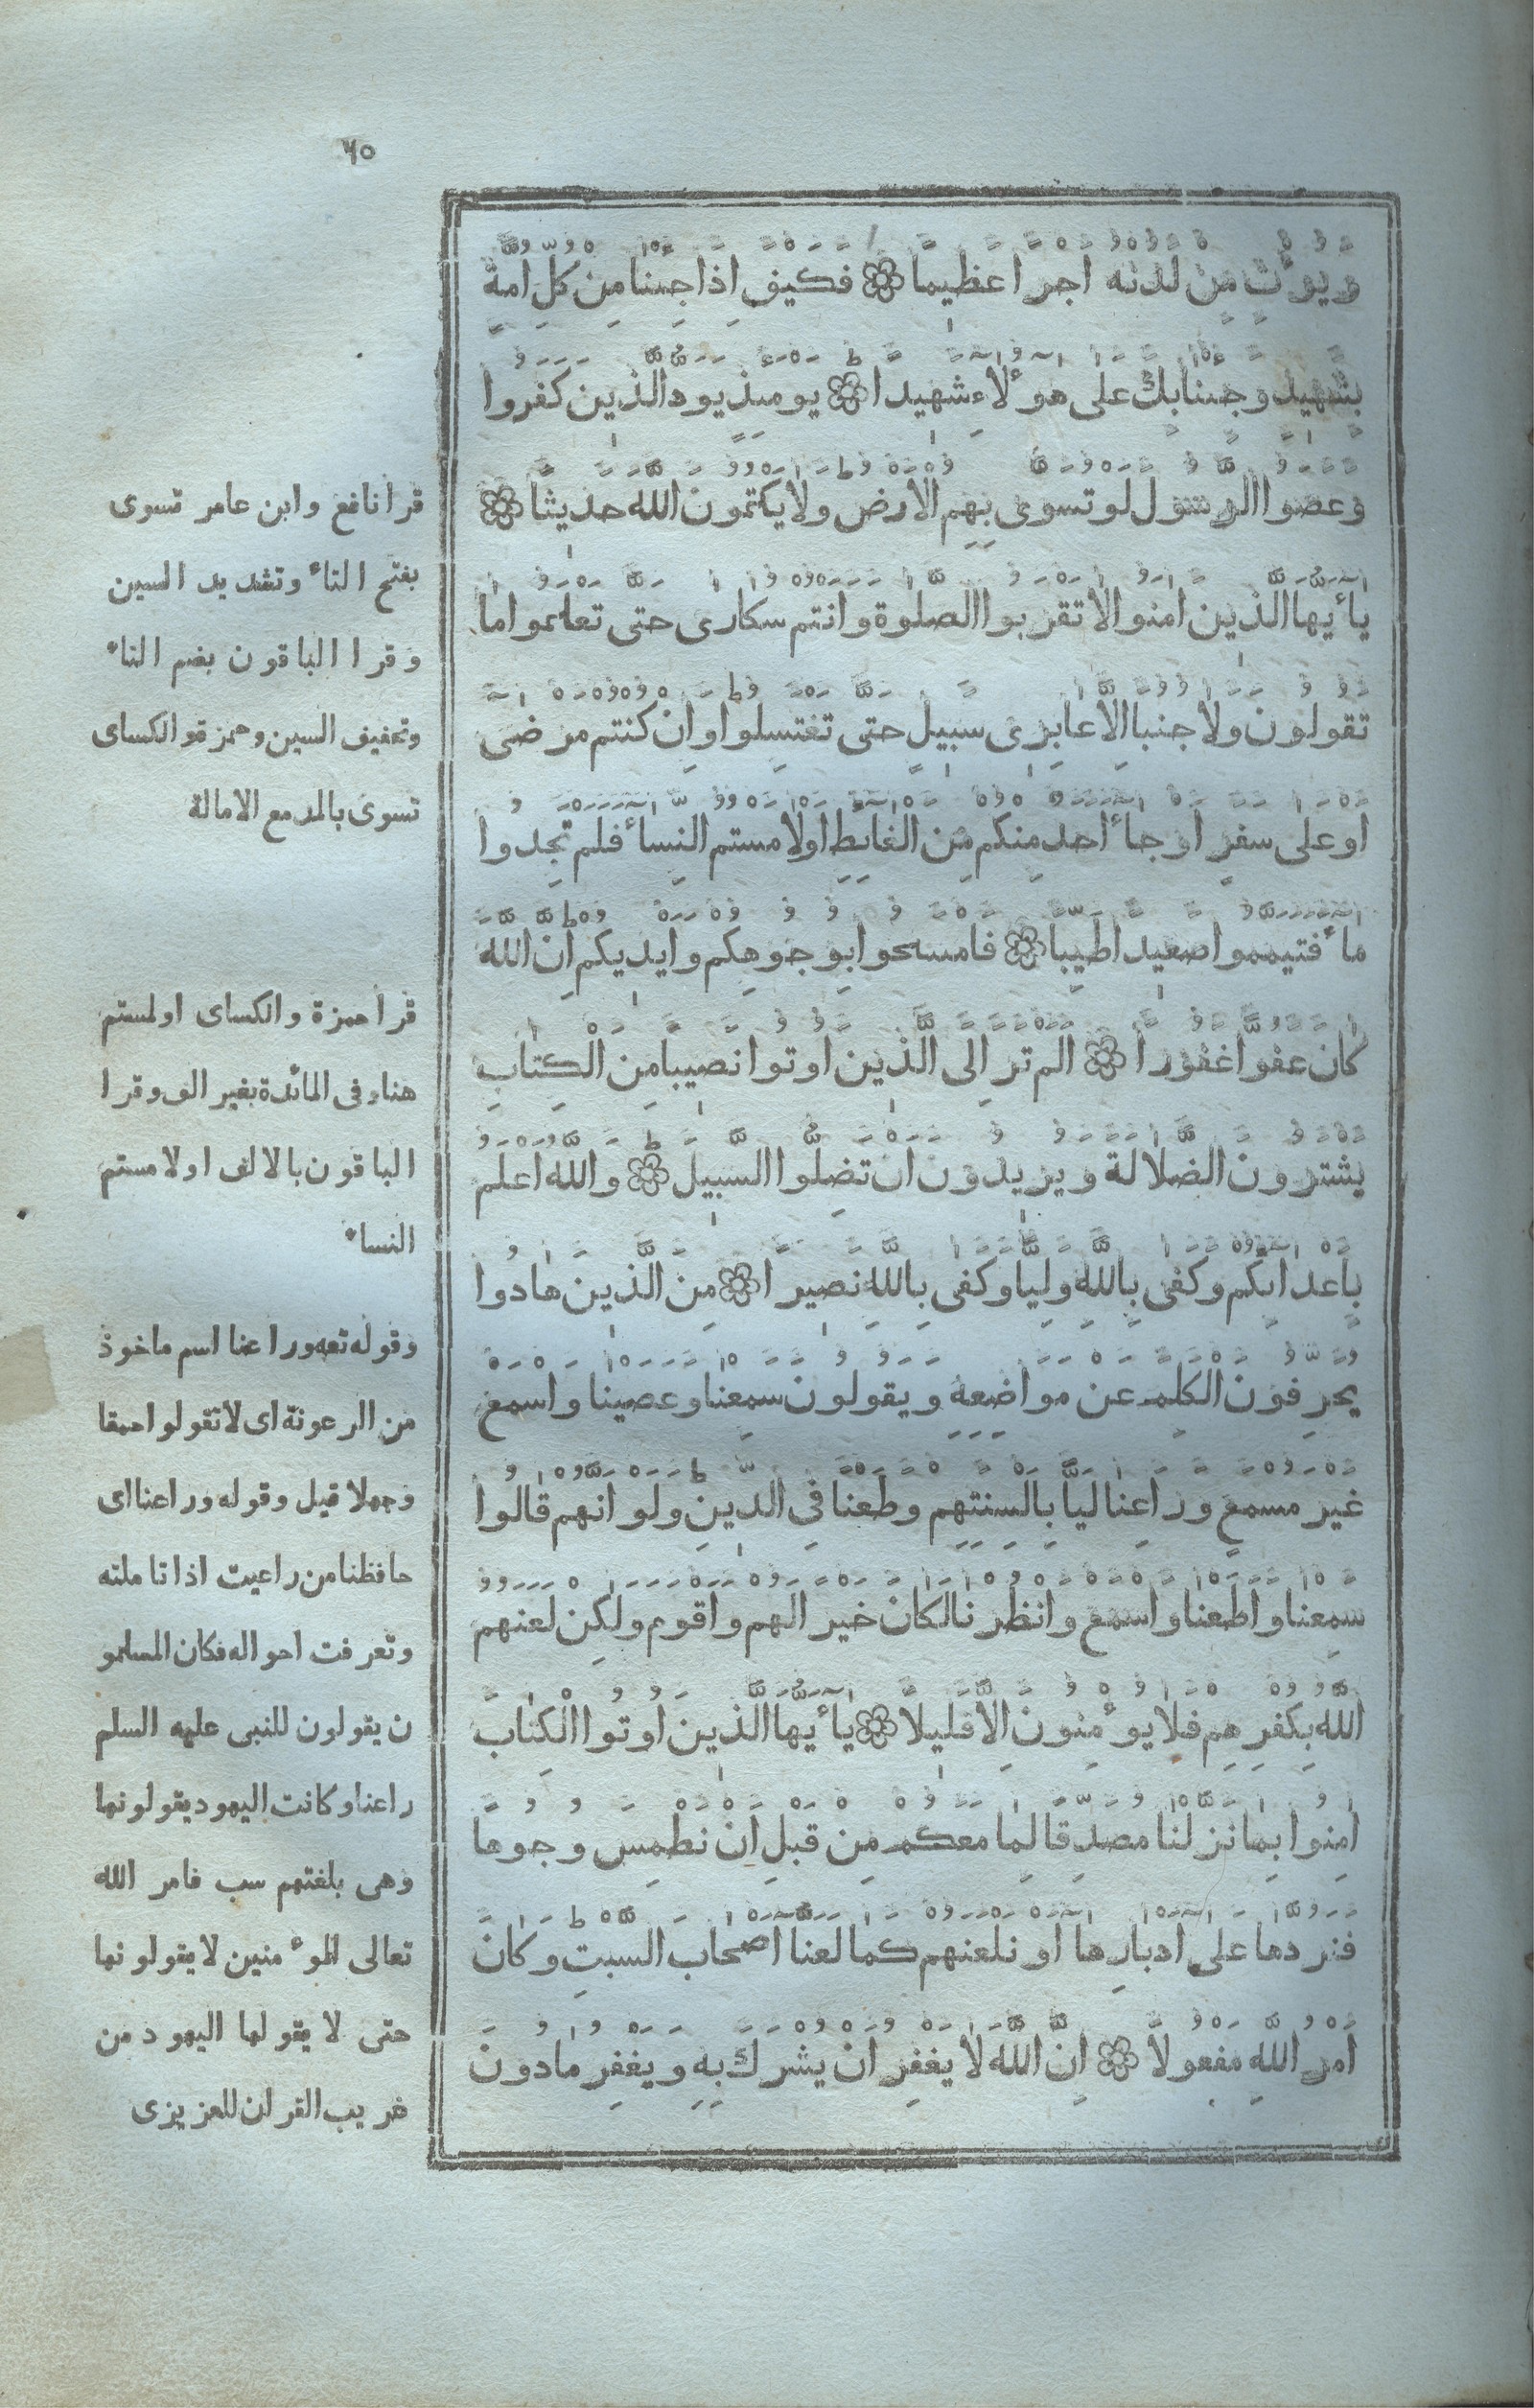 ٦٥
ويؤت من لدنه اجرا عظيما فكيف اذا جئنا من كل امة
بشهيد وجئنا بك على هؤلاء شهيدا يومئذ يود الذين كفروا
وعصوا الرسول لو تسوى بهم الارض ولا يكتمون الله حديثا
يا أيها الذين امنوا لا تقربوا الصلوة وانتم سكارى حتى تعلموا ما
تقولون ولا جنبا الا عابرى سبيل حتى تغتسلوا وان كنتم مرضى
او على سفر او جاء احد منكم من الغايط او لامستم النساء فلم تجدوا
ماء فتيمموا صعيدا طيبا فامسحوا بوجوهكم وايديكم ان الله
كان عفوا غفورا الم تر الى الذين اوتوا نصيبا من الكتاب
يشترون الضلالة ويريدون ان تضلوا السبيل والله اعلم
باعدائكم وكفى بالله وليا وكفى بالله نصيرا من الذين هادوا
يحرفون الكلم عن مواضعه ويقولون سمعنا وعصينا واسمع
غير مسمع وراعنا ليا بالسنتهم وطعنا في الدين ولو انهم قالوا
سمعنا واطعنا واسمع وانظرنا لكان خيرا لهم واقوم ولكن لعنهم
الله بكفرهم فلا يؤمنون الا قليلا يا أيها الذين اوتوا الكتاب
امنوا بما نزلنا مصدقا لما معكم من قبل ان نطمس وجوها
فنردها على ادبارها او نلعنهم كما لعنا اصحاب السبت وكان
امر الله مفعولا ان الله لا يغفر ان يشرك به ويغفر ما دون
قرأ نافع وابن عامر تسوى
بفتح التاء وتشديد السين
وقرا الباقون بضم التاء
وتخفيف السين وحمزة والكساى
تسوى بالمد مع الامالة
قرأ حمزة والكساى او لمستم
هنا وفى المائدة بغير الف وقرا
الباقون بالالف او لامستم
النساء
وقوله تعه وراعنا اسم ماخوذ
من الرعونة اى لا تقولوا حمقا
وجهلا قيل وقوله وراعنا اى
حافظنا من راعيت اذا تاملته
وتعرفت احواله فكان المسلمو
ن يقولون للنبى عليه السلم
راعنا وكانت اليهود يقولونها
وهى بلغتهم سب فامر الله
تعالى المؤمنين لا يقولونها
حتى لا يقولها اليهود من
غريب القران للعزيزى